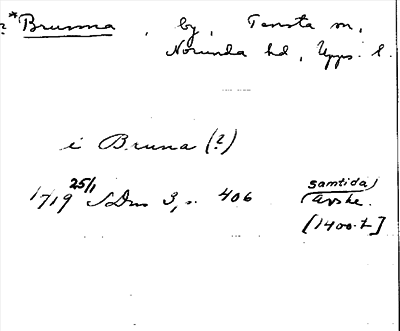 *Brunna, by, Tensta sn,
Norunda hd, Upps. l.
i Bruna (?)
1719 25/1 SDns 3, s. 406 (samtida)
avskr.
[1400-t]